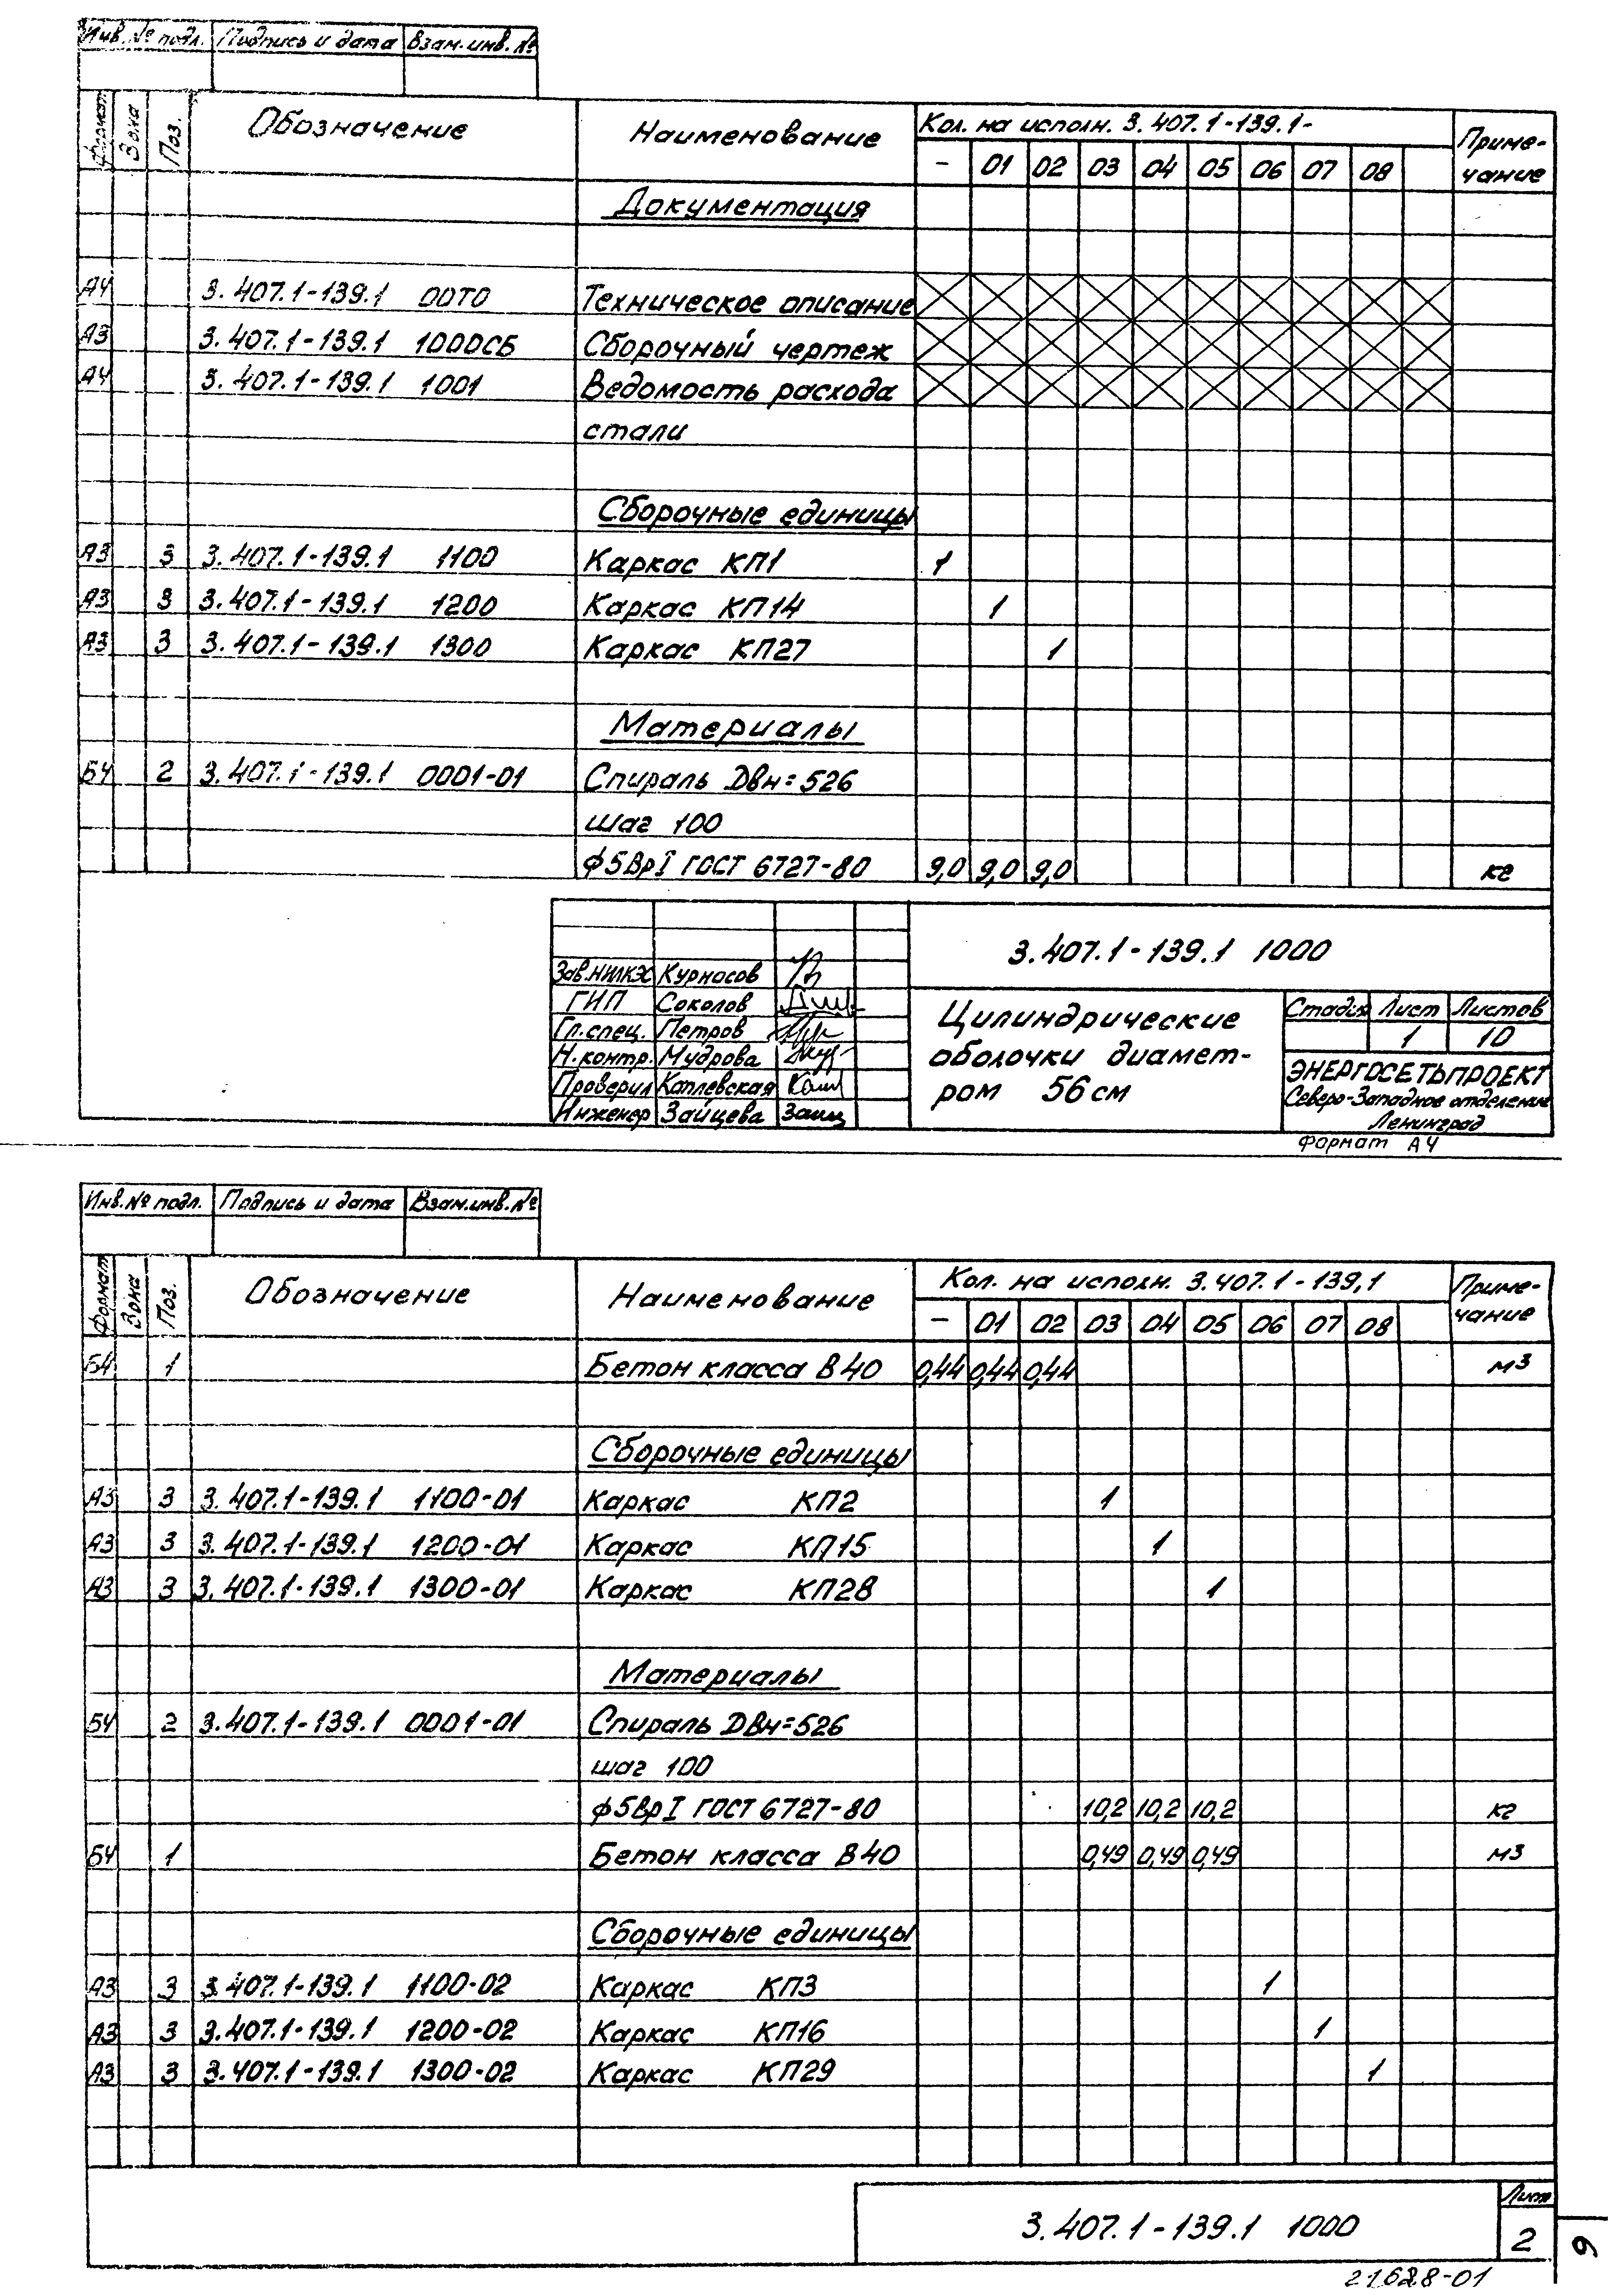 Инв. № подл. Подпись и дата Взам.инв. №
Формат Зона Поз. Обозначение Наименование Кол. на исполн. 3.407.1-139.1- Приме-
чание
- 01 02 03 04 05 06 07 08
Документация
А4 3.407.1-139.1 00ТО Техническое описание
А3 3.407.1-139.1 1000СБ Сборочный чертеж
А4 3.407.1-139.1 1001 Ведомость расхода
стали
Сборочные единицы
А3 3 3.407.1-139.1 1100 Каркас КП1 1
А3 3 3.407.1-139.1 1200 Каркас КП14 1
А3 3 3.407.1-139.1 1300 Каркас КП27 1
Материалы
БЧ 2 3.407.1-139.1 0001-01 Спираль Двн=526
шаг 100
ф5ВрI ГОСТ 6727-80 9,0 9,0 9,0 кг
3.407.1-139.1 1000
Зав.НИЛКЭС Курносов
ГИП Соколов
Гл.спец. Петров
Н.контр. Мудрова
Проверил Катлевская
Инженер Зайцева
Цилиндрические
оболочки диамет-
ром 56 см
Стадия Лист Листов
1 10
ЭНЕРГОСЕТЬПРОЕКТ
Северо-Западное отделение
Ленинград
Формат А4
Инв. № подл. Подпись и дата Взам.инв. №
Формат Зона Поз. Обозначение Наименование Кол. на исполн. 3.407.1-139,1 Приме-
чание
- 01 02 03 04 05 06 07 08
БЧ 1 Бетон класса В40 0,44 0,44 0,44 м3
Сборочные единицы
А3 3 3.407.1-139.1 1100-01 Каркас КП2 1
А3 3 3.407.1-139.1 1200-01 Каркас КП15 1
А3 3 3.407.1-139.1 1300-01 Каркас КП28 1
Материалы
БЧ 2 3.407.1-139.1 0001-01 Спираль Двн=526
шаг 100
ф5ВрI ГОСТ 6727-80 10,2 10,2 10,2 кг
БЧ 1 Бетон класса В40 0,49 0,49 0,49 м3
Сборочные единицы
А3 3 3.407.1-139.1 1100-02 Каркас КП3 1
А3 3 3.407.1-139.1 1200-02 Каркас КП16 1
А3 3 3.407.1-139.1 1300-02 Каркас КП29 1
3.407.1-139.1 1000
Лист
2
9
21628-01